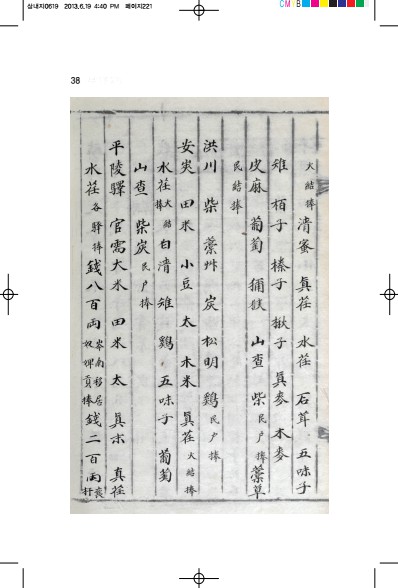 삼내지0619 2013.6.19 4:40 PM 페이지221
CM B
38
大結捧 淸蜜 眞荏 水荏 石茸 五味子
雉 栢子 榛子 楸子 眞麥 木麥
皮麻 葡萄 獼猴 山査 柴 民戶捧 藁草
民結捧
洪川 柴 藁艸 炭 松明 鷄 民戶捧
安峽 田米 小豆 太 木米 眞荏 大結捧
水荏 大結捧 白淸 雉 鷄 五味子 葡萄
山査 柴炭 民戶捧
平陵驛 官需大米 田米 太 眞末 真荏
水荏 各驛捧 錢八百兩 嶺南移居奴婢貢捧 錢二百兩